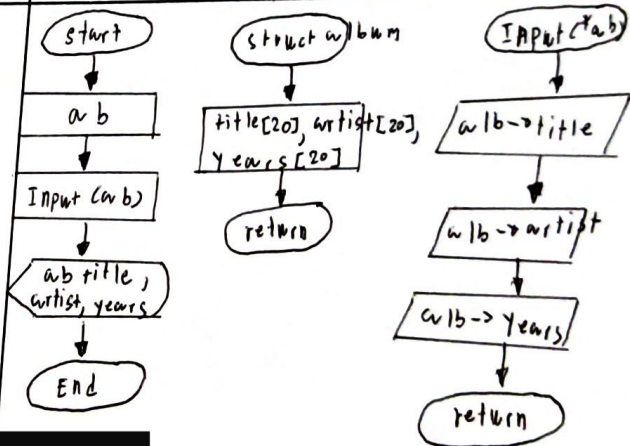 start
ab
Input (ab)
ab title,
artist, years
End
struct album
title[20], artist[20],
years[20]
return
Input(*ab)
alb->title
alb->artist
alb->years
return